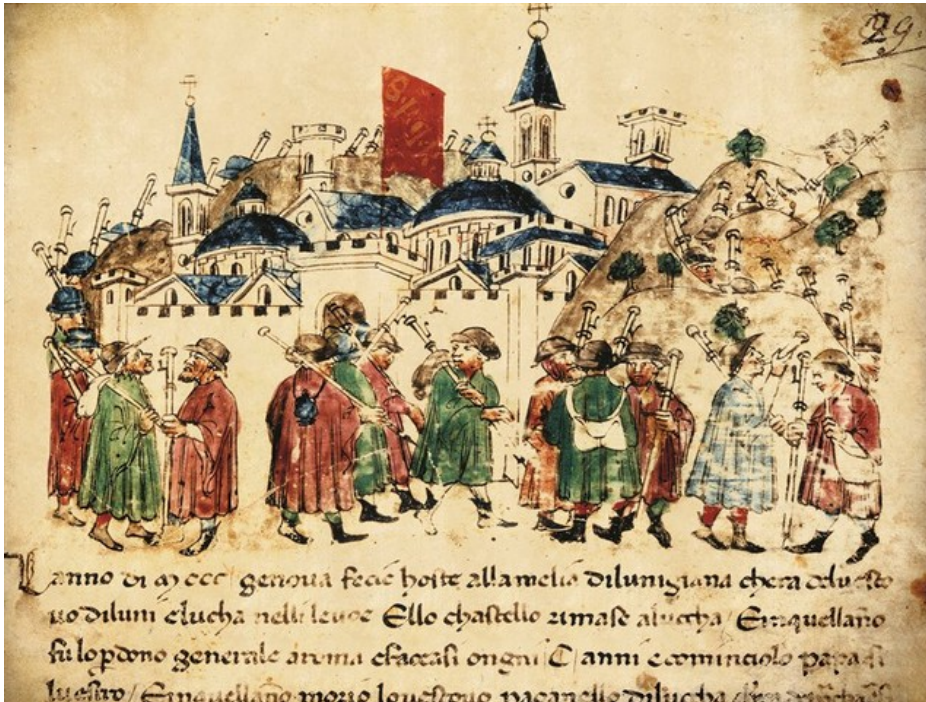 29.
Lanno di M ccc / genoua fecie hoste allamelia dilunigiana chera deluesco
uo diluni elucha nelli leuoe Ello chastello rimase aluccha / Einquellano
fu lo pdono generale aroma efaccasi ongni / C / anni e cominciolo papa si
luestro / Einquellano morio louescouo paganello diluccha